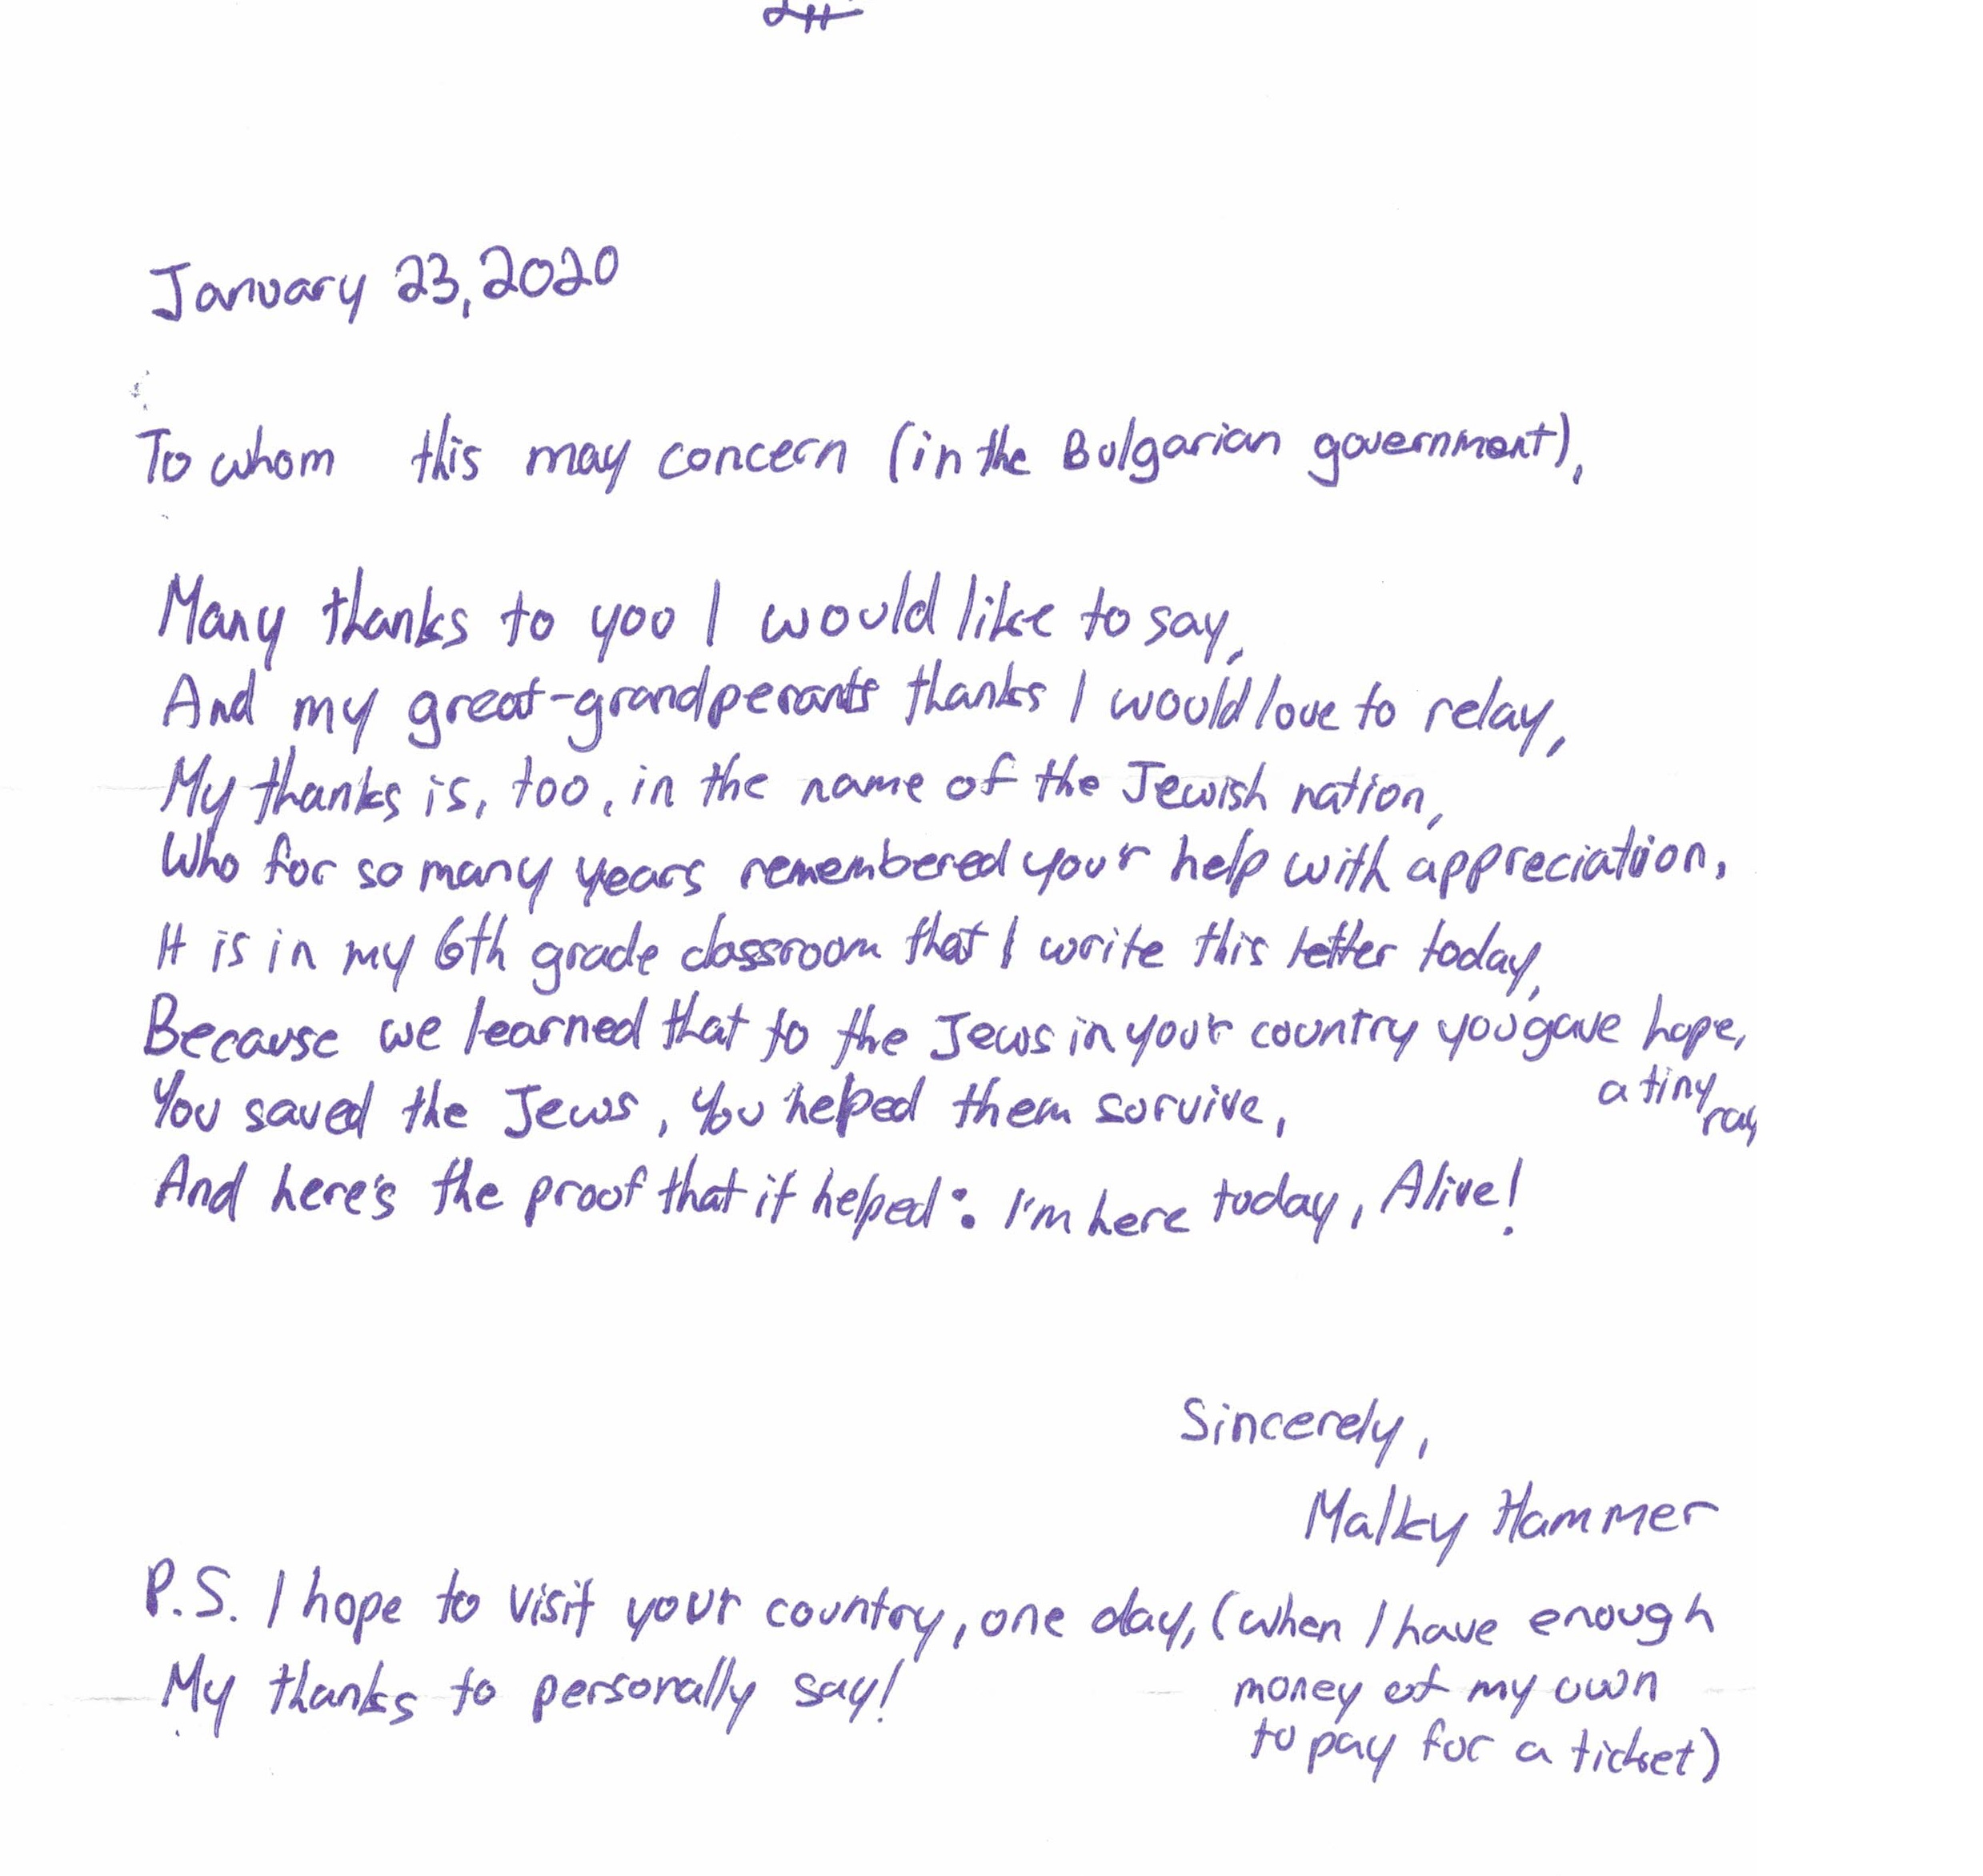 January 23, 2020
To whom this may concern (in the Bulgarian government),
Many thanks to you I would like to say,
And my great-grandperants thanks I would love to relay,
My thanks is, too, in the name of the Jewish nation,
Who for so many years remembered your help with appreciation,
It is in my 6th grade classroom that I write this letter today,
Because we learned that to the Jews in your country you gave hope,
a tiny
ray
You saved the Jews, You helped them survive,
And here's the proof that it helped: I'm here today, Alive!
Sincerely,
Malky Hammer
P.S. I hope to visit your country, one day, (when I have enough
money of my own
to pay for a ticket)
My thanks to personally say!